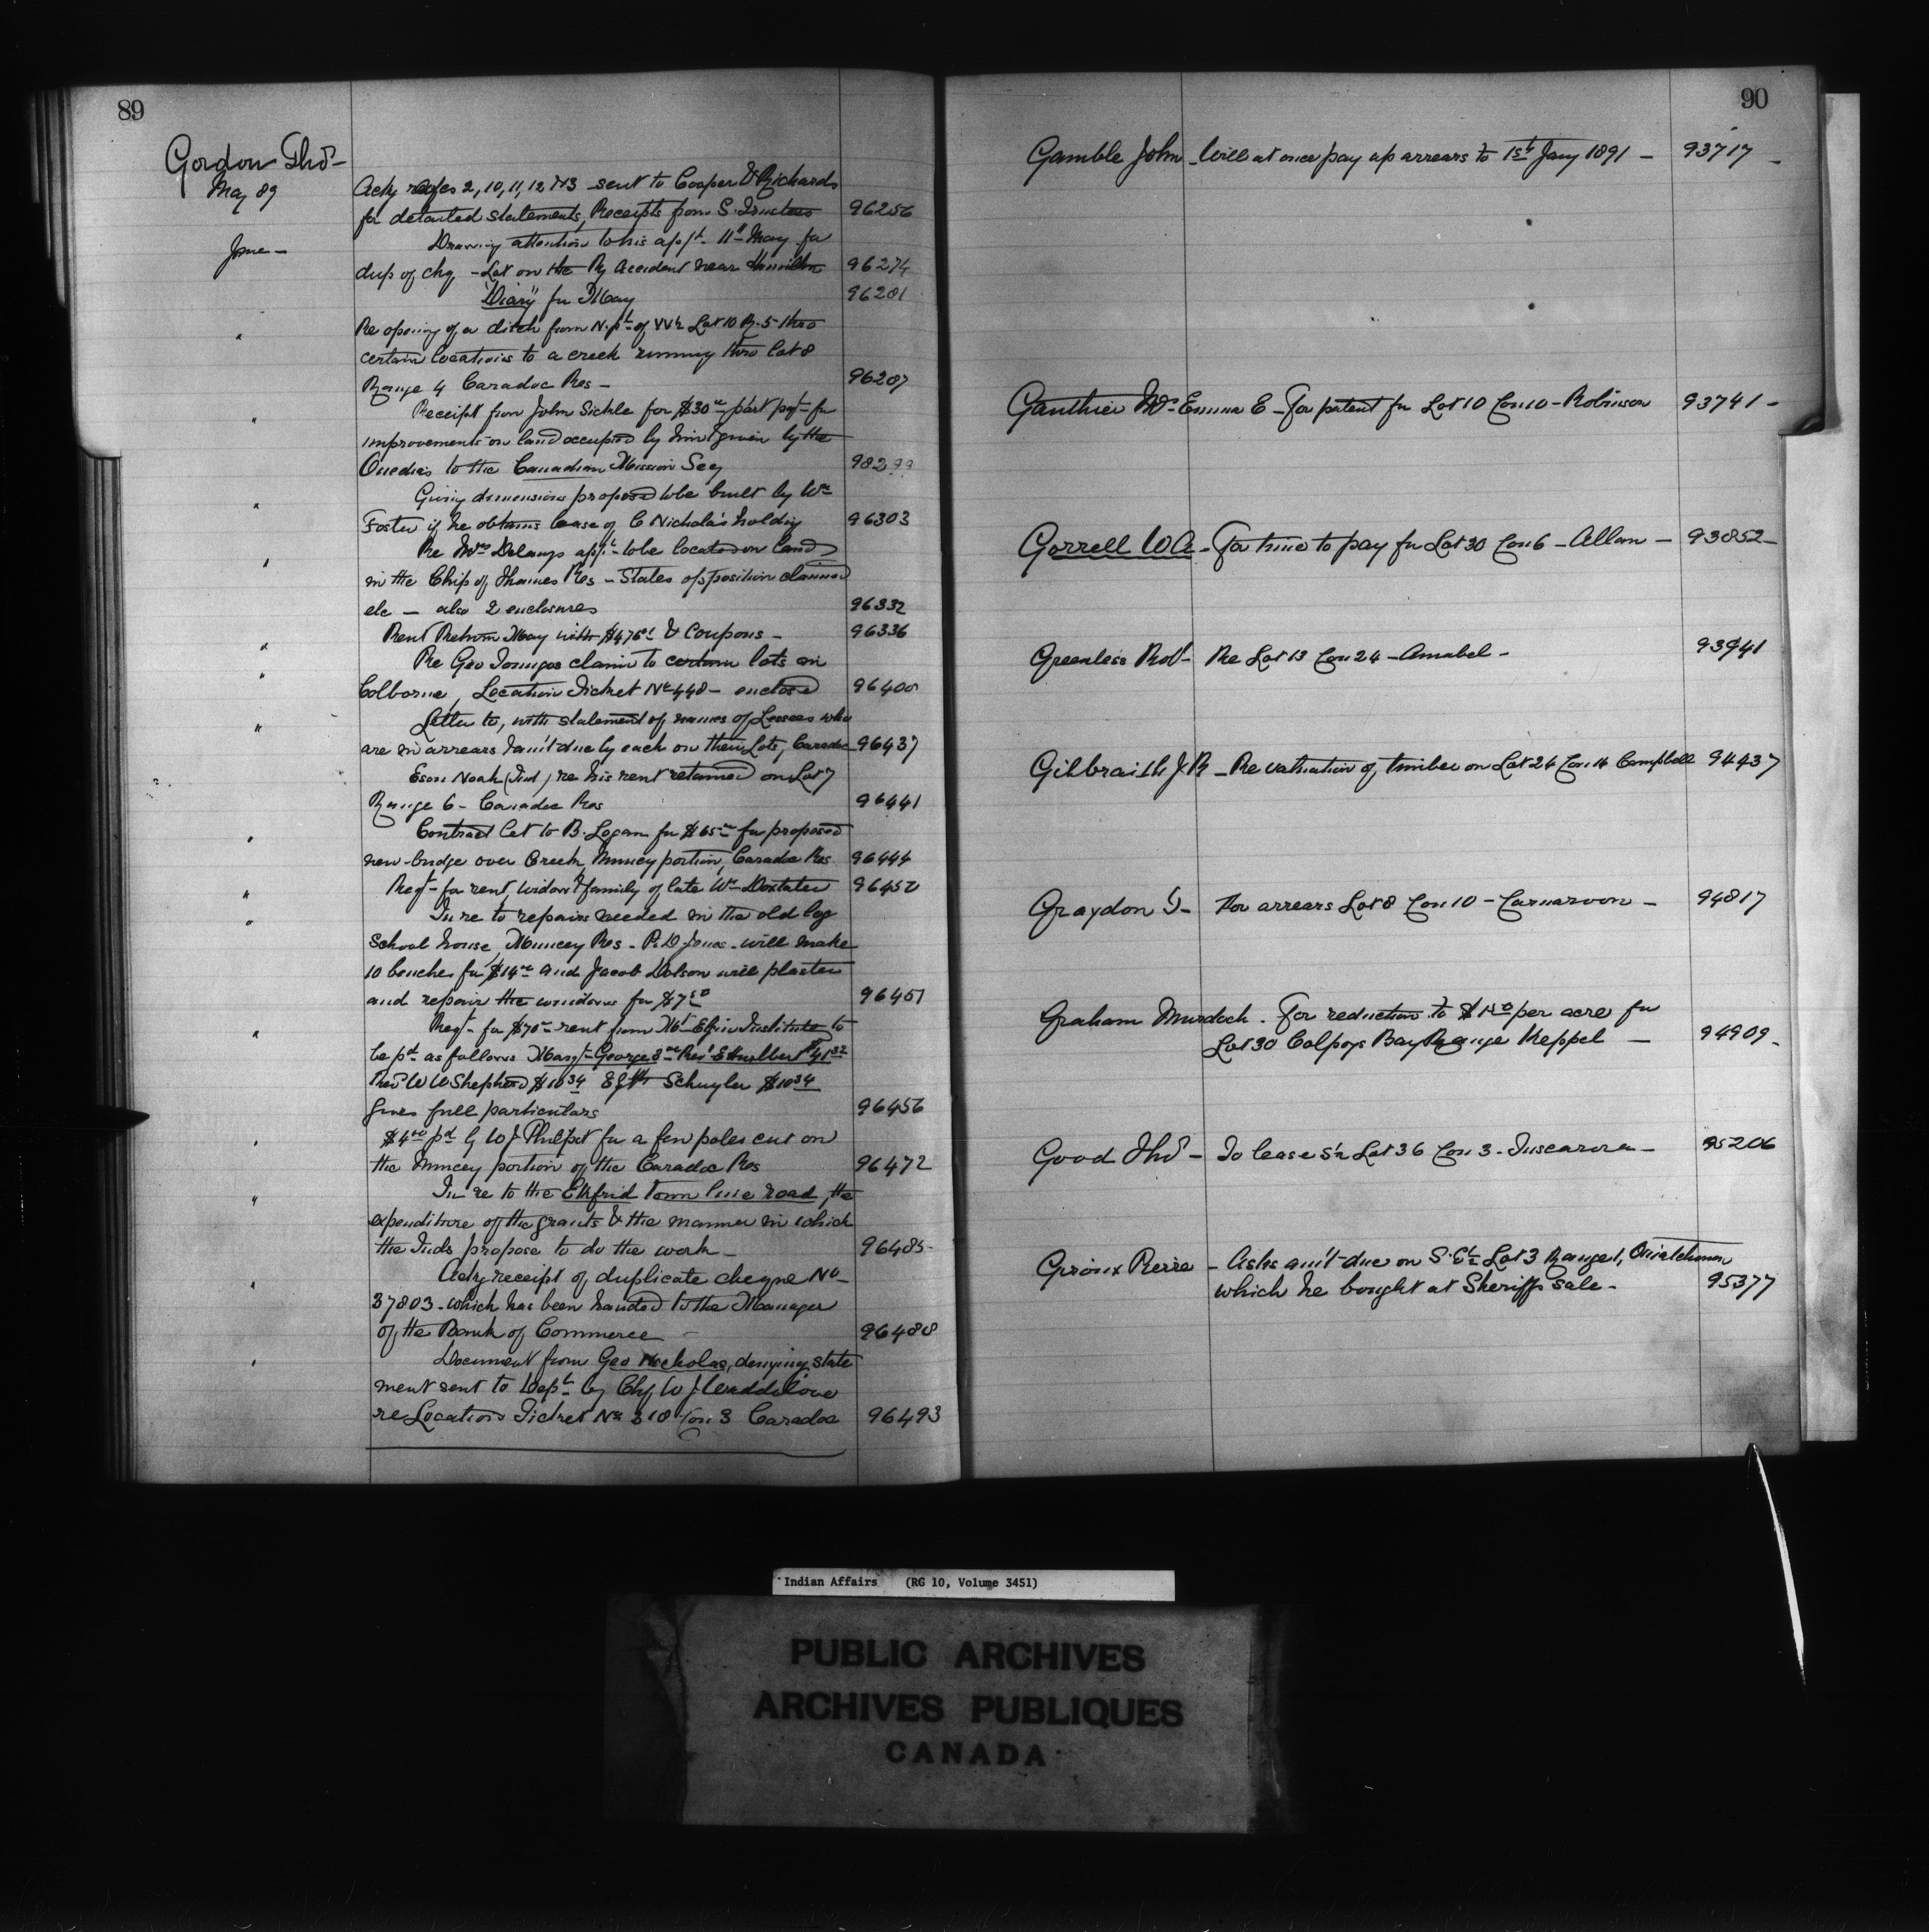 89
Gordon Thos
May 89
Ackg 2, 10, 11, 12 & 13 sent to Cooper & Richards
for detailed statements, Receipts from S. Trustees 96256
June - Drawing attention to his appt. 11th May for
dup of chq - Lost on the Ry Accident near Hamilton 96274
"Diary" for May 96281
" Re opening of a ditch from N. pt of W½ Lot 10 R. 5 thro
certain locations to a creek running thro lot 8
Range 4 Caradoc Res - 96287
" Receipt from John Sickle for $30 part pyt for
improvements on land occupied by him & given by the
Oneidas to the Canadian Mission Socy 98299
" Giving dimensions proposed to be built by Wm
Foster if he obtains lease of C Nicholas holding 96303
" Re Mrs Delangs appt to be located on land
in the Chip of Thames Res - States opposition claimed
etc - also 2 enclosures 96332
" Rent Return May with & Coupons - 96336
" Re Geo claim to certain lots in
Colborne, Location Ticket No 448 - enclosed 96400
" Letter to, with statement of names of Lessees who
are in arrears & am't due by each on their Lots, Caradoc 96437
Noah (Ind) re his rent retained on Lot 7
Range 6 - Caradoc Res 96441
" Contract let to B. Logan for $65 for proposed
new bridge over Creek, Muncey portion, Caradoc Res 96444
" Reqt - for rent, widow & family of late Wm Doxtater 96450
" In re to repairs needed in the old log
School house, Muncey Res - P. D Jones - will make
10 benches for $14 and Jacob Dolson will plaster
and repair the windows for $7.50 96451
" Reqt - for $70 rent from Mt Elgin Institute to
be pd as follows Margt George 8 Revd E Hurlburt $41.32
Revd W W Shepherd $10.34 Schuyler $10.34
Gives full particulars 96456
" $4.00 pd by W J Philpot for a few poles cut on
the Muncey portion of the Caradoc Res 96472
" In re to the Ekfrid Town line road, the
expenditure of the grants & the manner in which
the Inds propose to do the work - 96485
" Ackg receipt of duplicate cheque No -
37803 - which has been handed to the Manager
of the Bank of Commerce - 96488
" Document from Geo Nicholas, denying state
ment sent to Dept by Chf W J Waddilove
re Location Ticket No 310 Con 3 Caradoc 96493
90
Gamble John - Will at once pay up arrears to 1st Jany 1891 - 93717 -
Gauthier Mrs Emma E - For patent for Lot 10 Con 10 - Robinson 93741 -
Gorrell W A - For time to pay for Lot 30 Con 6 - Allan - 93852 -
Greenless Robt - Re Lot 13 Con 24 - Amabel - 93941
Gilbraith J R - Re valuation of timber on Lot 24 Con 14 Campbell 94437
Graydon T - For arrears Lot 8 Con 10 - Carnarvon - 94817
Graham Murdoch - For reduction to $1.50 per acre for
Lot 30 Colpoys Bay Range Keppel - 94909 -
Good Thos - To lease S½ Lot 36 Con 3 - Tuscarora - 95206
Giroux Pierre - Asks am't due on S. E¼ Lot 3 Range 1, Ouiatchouan
which he bought at Sheriffs sale - 95377
Indian Affairs (RG 10, Volume 3451)
PUBLIC ARCHIVES
ARCHIVES PUBLIQUES
CANADA